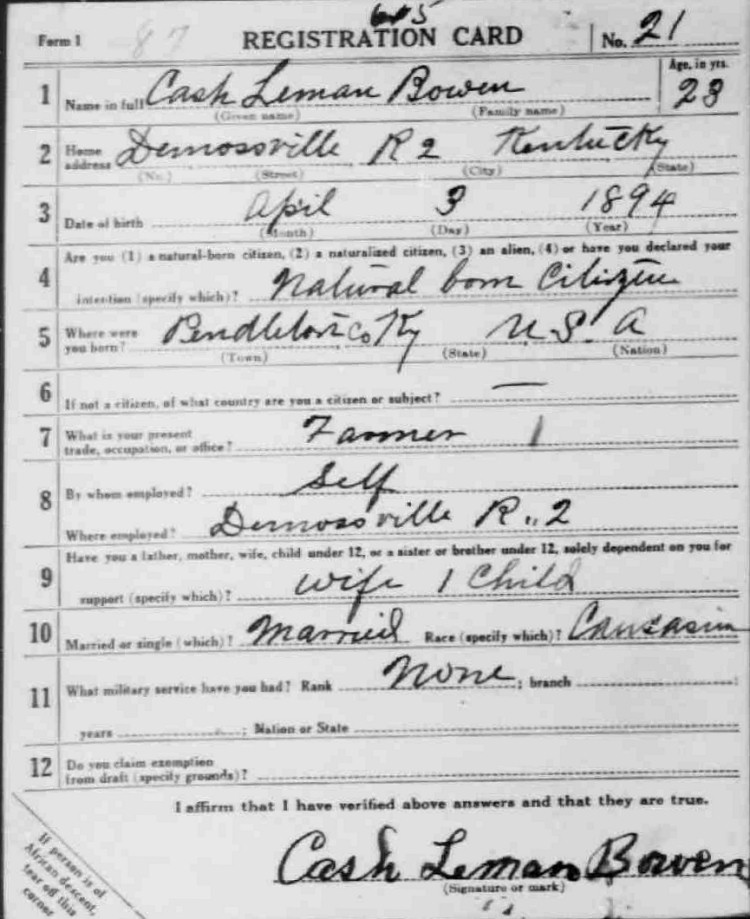 605
Form 1 87 REGISTRATION CARD No. 21
Age, in yrs.
1 Name in full Cash Leman Bowen 23
(Given name) (Family name)
2 Home address Demossville R 2 Kentucky
(No.) (Street) (City) (State)
3 Date of birth April 3 1894
(Month) (Day) (Year)
Are you (1) a natural-born citizen, (2) a naturalized citizen, (3) an alien, (4) or have you declared your
4 intention (specify which)? Natural born Citizen
5 Where were you born? Pendleton Co Ky U.S. A
(Town) (State) (Nation)
6 If not a citizen, of what country are you a citizen or subject? —
7 What is your present trade, occupation, or office? Farmer 1
8 By whom employed? Self
Where employed? Demossville R.. 2
Have you a father, mother, wife, child under 12, or a sister or brother under 12, solely dependent on you for
9 support (specify which)? wife 1 Child
10 Married or single (which)? Married Race (specify which)? Caucasian
11 What military service have you had? Rank None ; branch ;
years ; Nation or State
12 Do you claim exemption from draft (specify grounds)?
I affirm that I have verified above answers and that they are true.
Cash Leman Bowen
(Signature or mark)
If person is of
African descent,
tear off this
corner